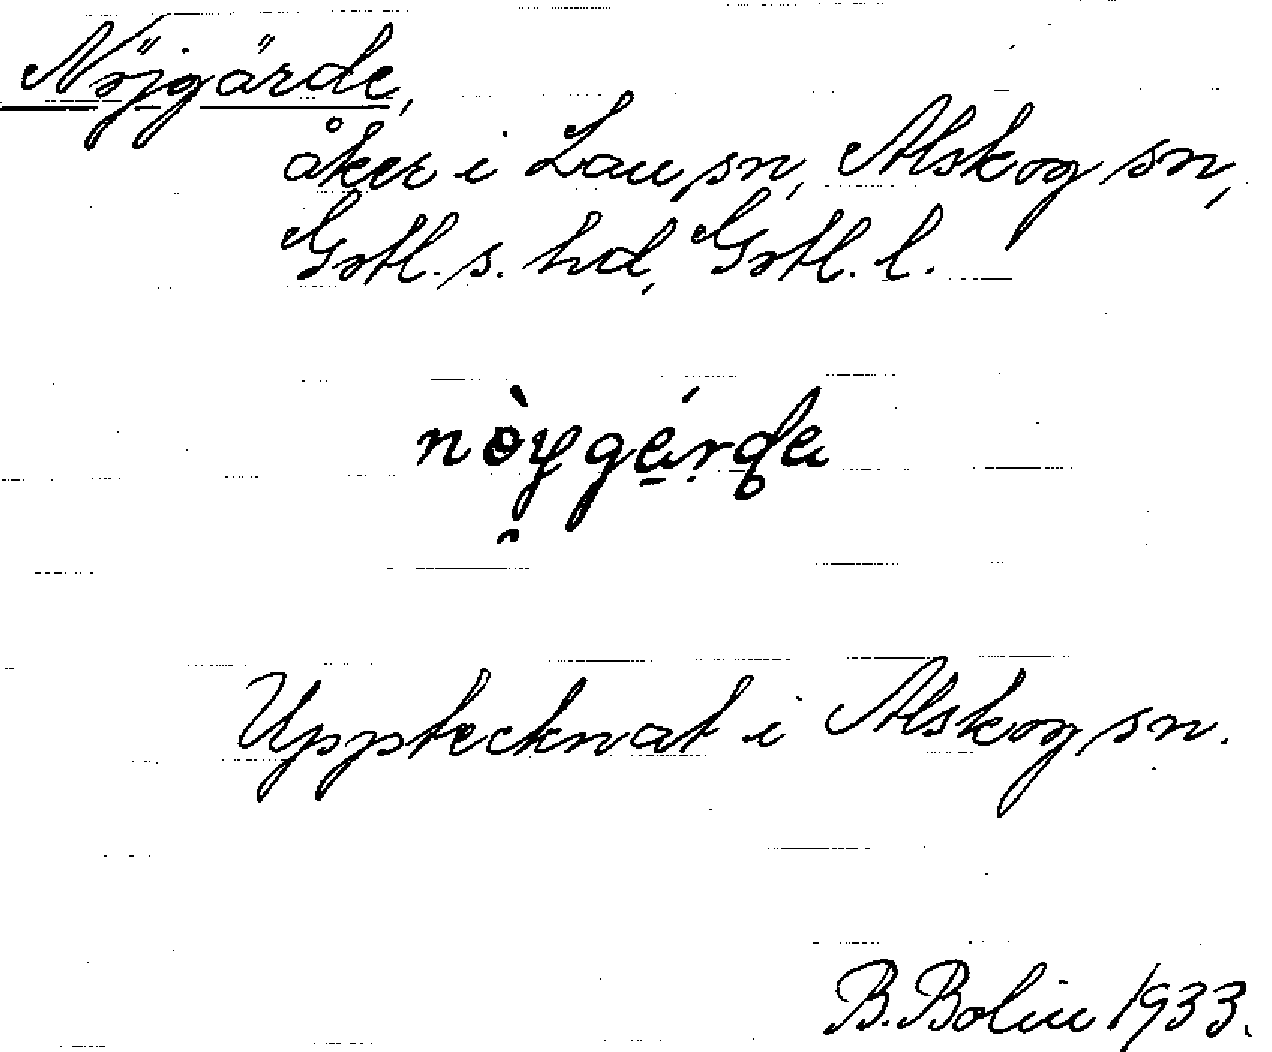 Nöjgärde,
åker i Lau sn, Alskog sn,
Gotl. s. hd, Gotl. l.
nòygárda
Upptecknat i Alskog sn.
B. Bolin 1933.